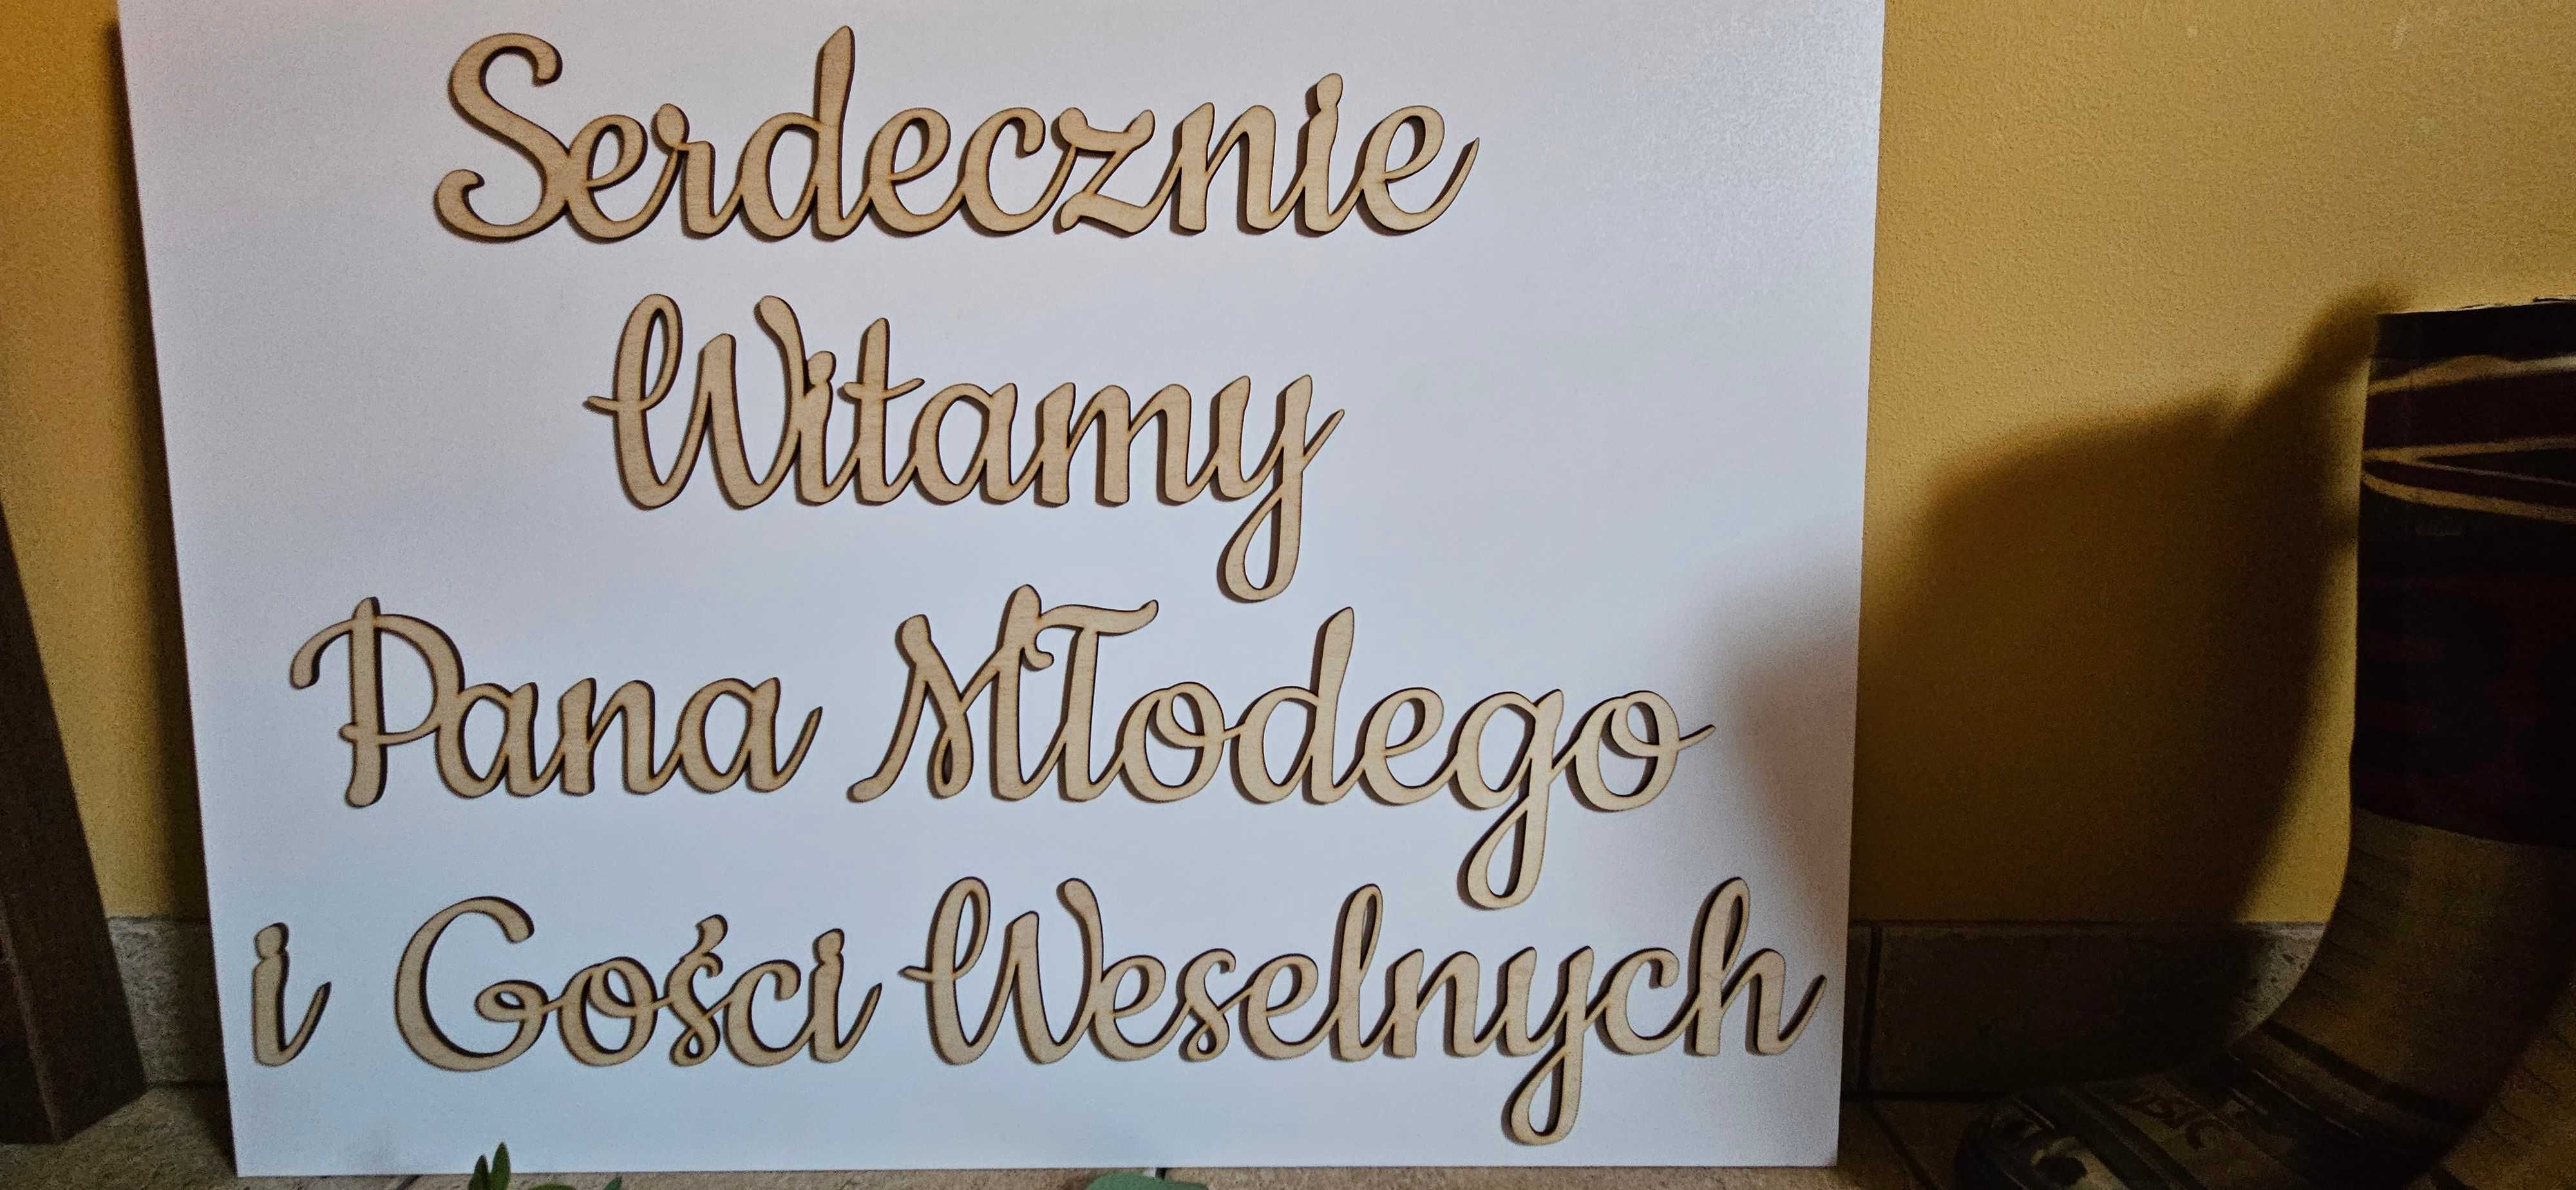 Serdecznie
Witamy
Pana Młodego
i Gości Weselnych